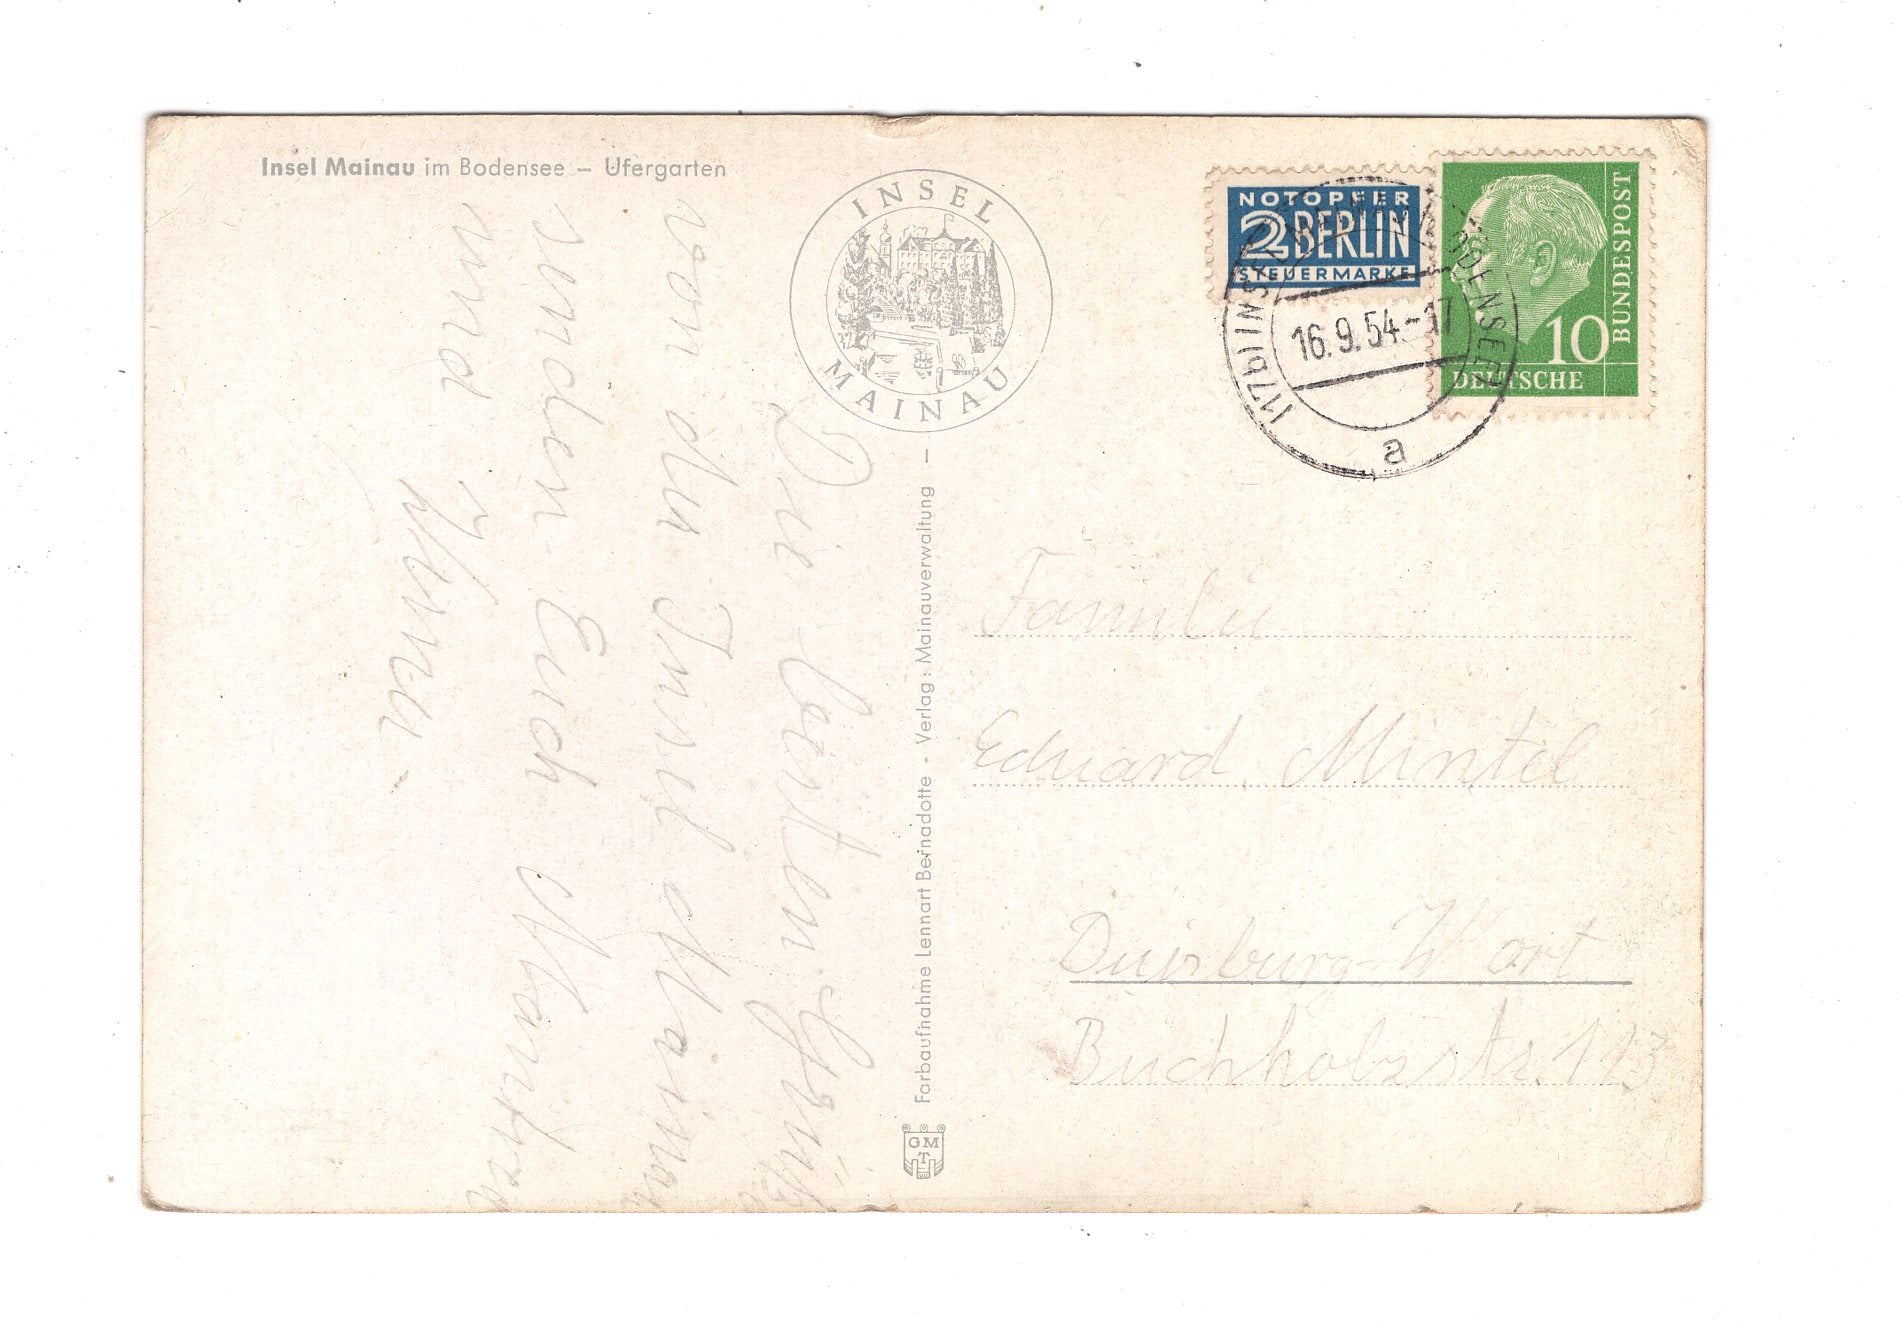 Insel Mainau im Bodensee – Ufergarten
INSEL
MAINAU
NOTOPFER
2 BERLIN
STEUERMARKE
10
DEUTSCHE
BUNDESPOST
(17b) INSEL MAINAU (BODENSEE)
16.9.54–17
a
Die besten Grüße
von der Insel Mainau
senden Euch
und
Farbaufnahme Lennart Bernadotte - Verlag: Mainauverwaltung –
GMT
Familie
Eduard Mintel
Duisburg-W'ort
Buchholzstr. 113